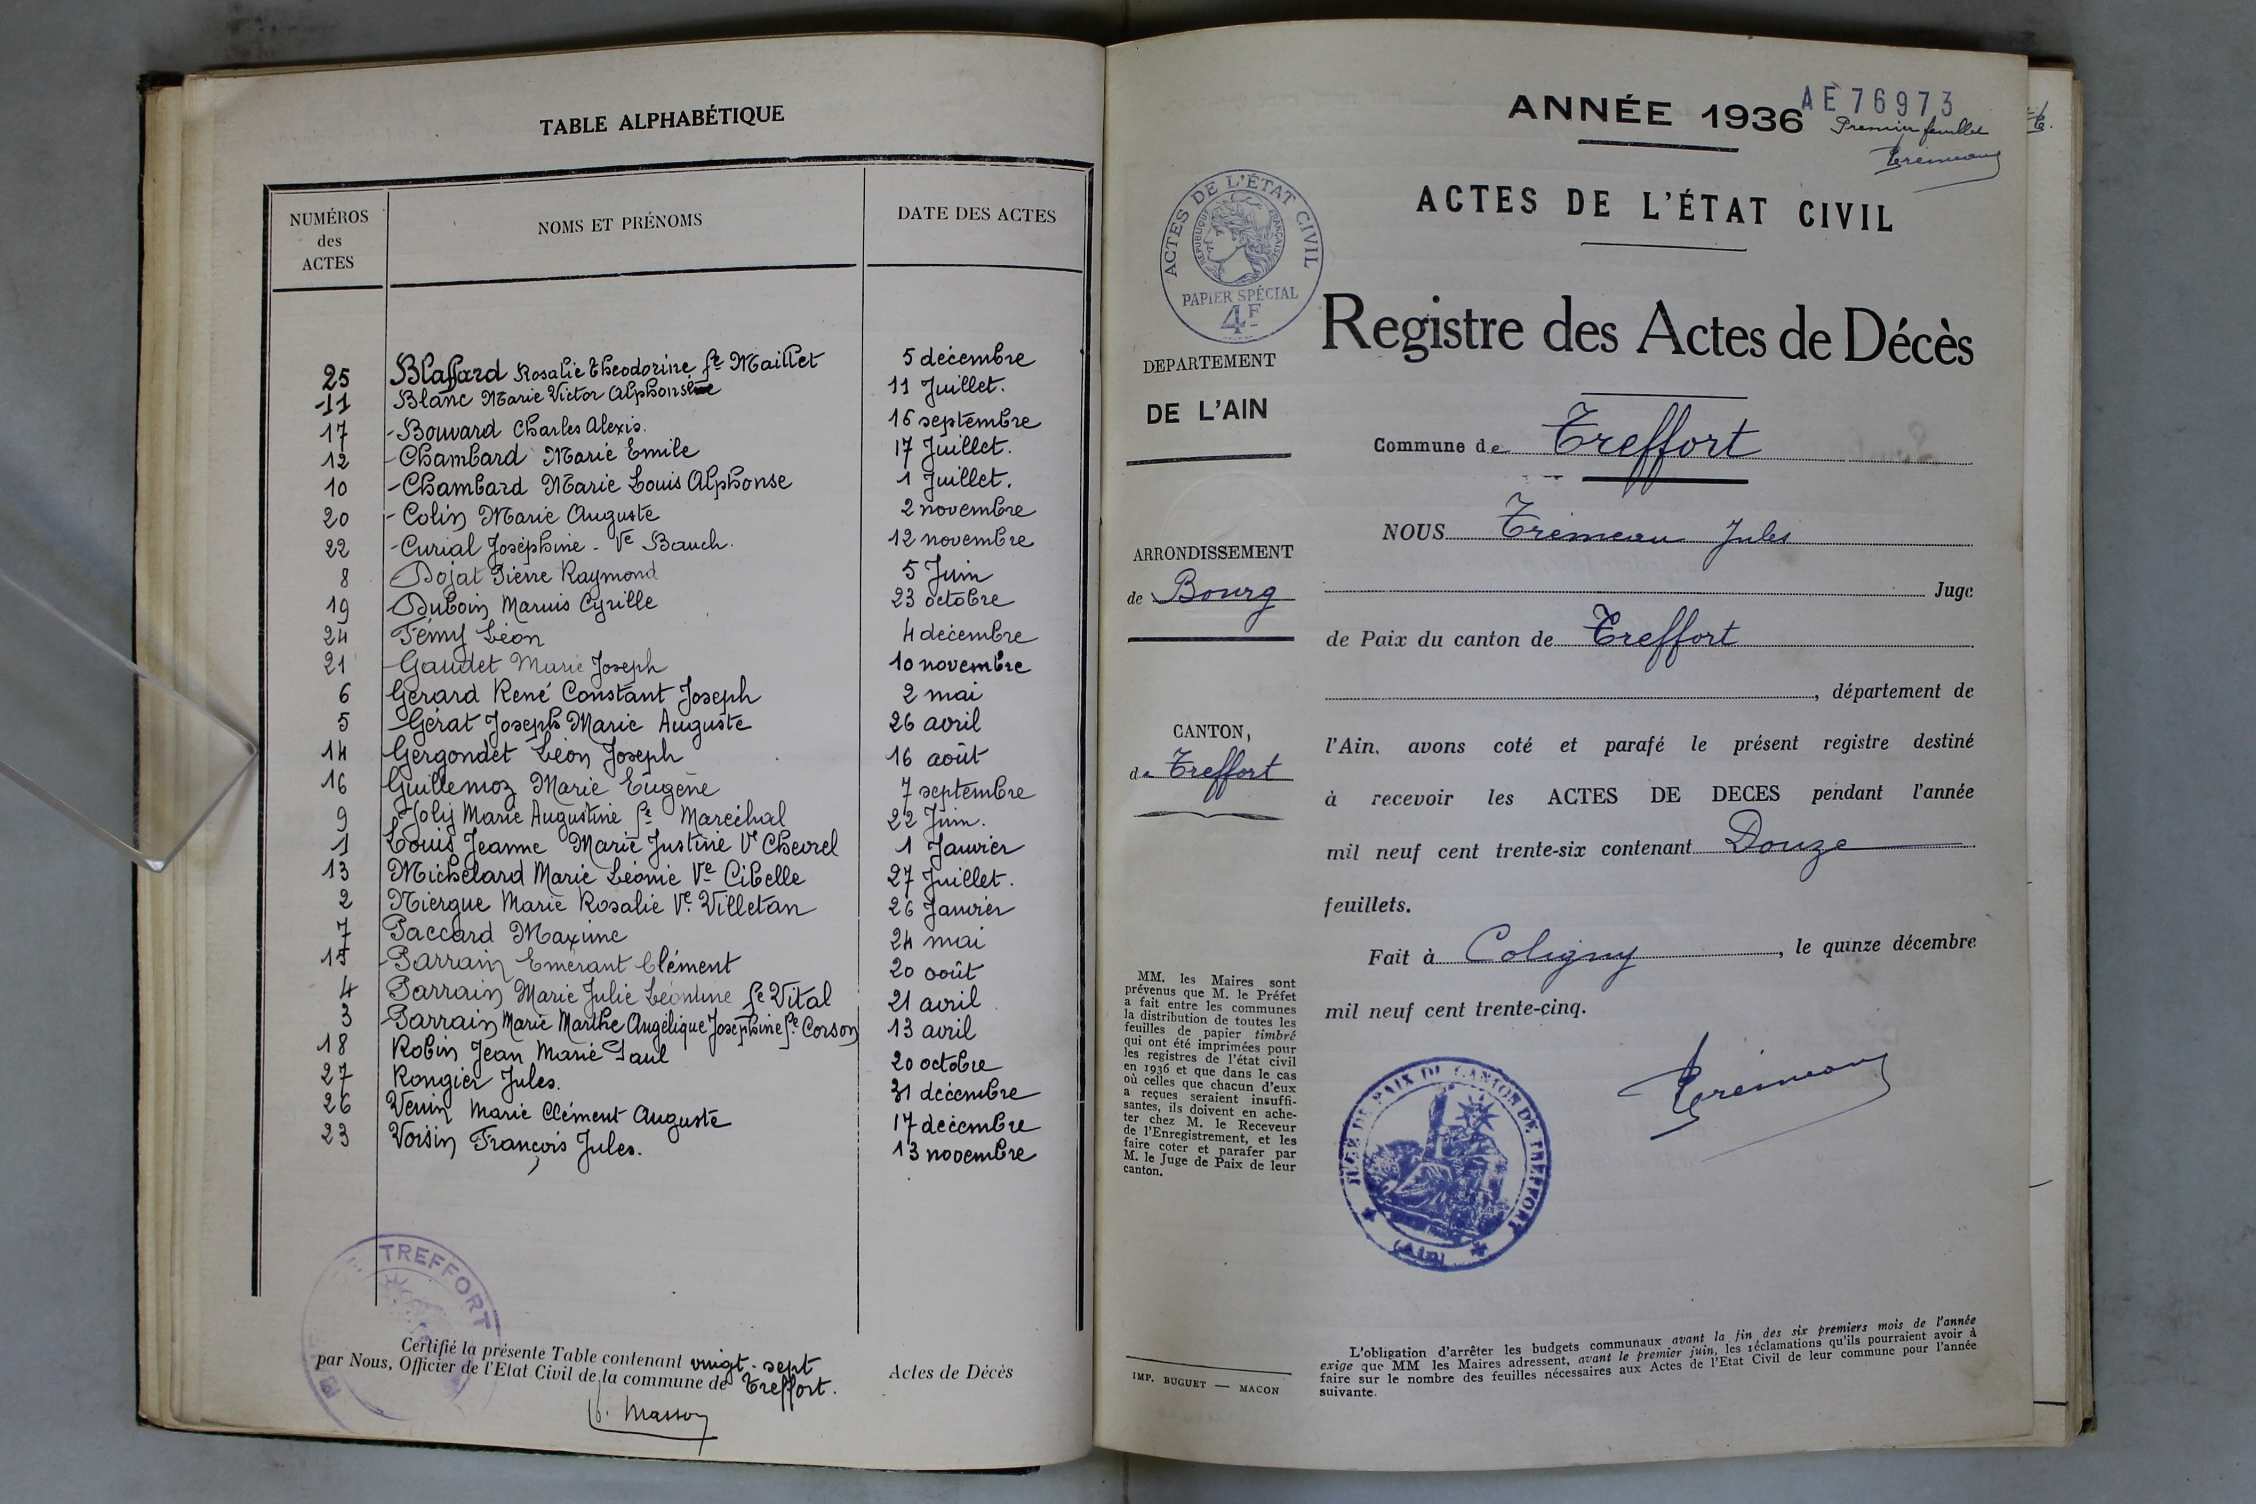 TABLE ALPHABÉTIQUE
NUMÉROS des ACTES NOMS ET PRÉNOMS DATE DES ACTES
25 Blaffard Rosalie Théodorine fe Maillet 5 décembre
11 Blanc Marie Victor Alphonse 11 Juillet.
17 Bouvard Charles Alexis. 16 septembre
12 Chambard Marie Emile 17 Juillet.
10 Chambard Marie Louis Alphonse 1 Juillet.
20 Colin Marie Auguste 2 novembre
22 Curial Joséphine - Ve Bauch. 12 novembre
8 Dojat Pierre Raymond 5 Juin
19 Duboin Marius Cyrille 23 octobre
24 Fémy Léon 4 décembre
21 Gaudet Marie Joseph 10 novembre
6 Gérard René Constant Joseph 2 mai
5 Gérat Joseph Marie Auguste 26 avril
14 Gergondet Léon Joseph 16 août
16 Guillemoz Marie Eugène 7 septembre
9 Joly Marie Augustine fe Maréchal 22 Juin.
1 Louis Jeanne Marie Justine Ve Chevrel 1 Janvier
13 Michelard Marie Léonie Ve Cibelle 27 Juillet.
2 Niergue Marie Rosalie Ve Villetan 26 Janvier
7 Paccard Maxime 24 mai
15 Parrain Emérant Clément 20 août
4 Parrain Marie Julie Léontine fe Vital 21 avril
3 Parrain Marie Marthe Angélique Joséphine fe Corson 13 avril
18 Robin Jean Marie Paul 20 octobre
27 Rongier Jules. 31 décembre
26 Venin Marie Clément Auguste 17 décembre
23 Voisin François Jules. 13 novembre
TREFFORT
Certifié la présente Table contenant vingt-sept Actes de Décès
par Nous, Officier de l'Etat Civil de la commune de Treffort.
Masson
ANNÉE 1936
AE 76973
Premier feuillet
Trémeau
ACTES DE L'ÉTAT CIVIL
ACTES DE L'ÉTAT CIVIL
RÉPUBLIQUE FRANÇAISE
PAPIER SPÉCIAL
4F
Registre des Actes de Décès
DEPARTEMENT
DE L'AIN
Commune de Treffort
NOUS Trémeau Jules
ARRONDISSEMENT
de Bourg
Juge
de Paix du canton de Treffort
, département de
CANTON,
de Treffort
l'Ain, avons coté et parafé le présent registre destiné
à recevoir les ACTES DE DECES pendant l'année
mil neuf cent trente-six contenant Douze
feuillets.
Fait à Coligny, le quinze décembre
mil neuf cent trente-cinq.
MM. les Maires sont
prévenus que M. le Préfet
a fait entre les communes
la distribution de toutes les
feuilles de papier timbré
qui ont été imprimées pour
les registres de l'état civil
en 1936 et que dans le cas
où celles que chacun d'eux
a reçues seraient insuffi-
santes, ils doivent en ache-
ter chez M. le Receveur
de l'Enregistrement, et les
faire coter et parafer par
M. le Juge de Paix de leur
canton.
Trémeau
JUGE DE PAIX DU CANTON DE TREFFORT
(AIN)
IMP. BUGUET — MACON
L'obligation d'arrêter les budgets communaux avant la fin des six premiers mois de l'année
exige que MM les Maires adressent, avant le premier juin, les réclamations qu'ils pourraient avoir à
faire sur le nombre des feuilles nécessaires aux Actes de l'Etat Civil de leur commune pour l'année
suivante.